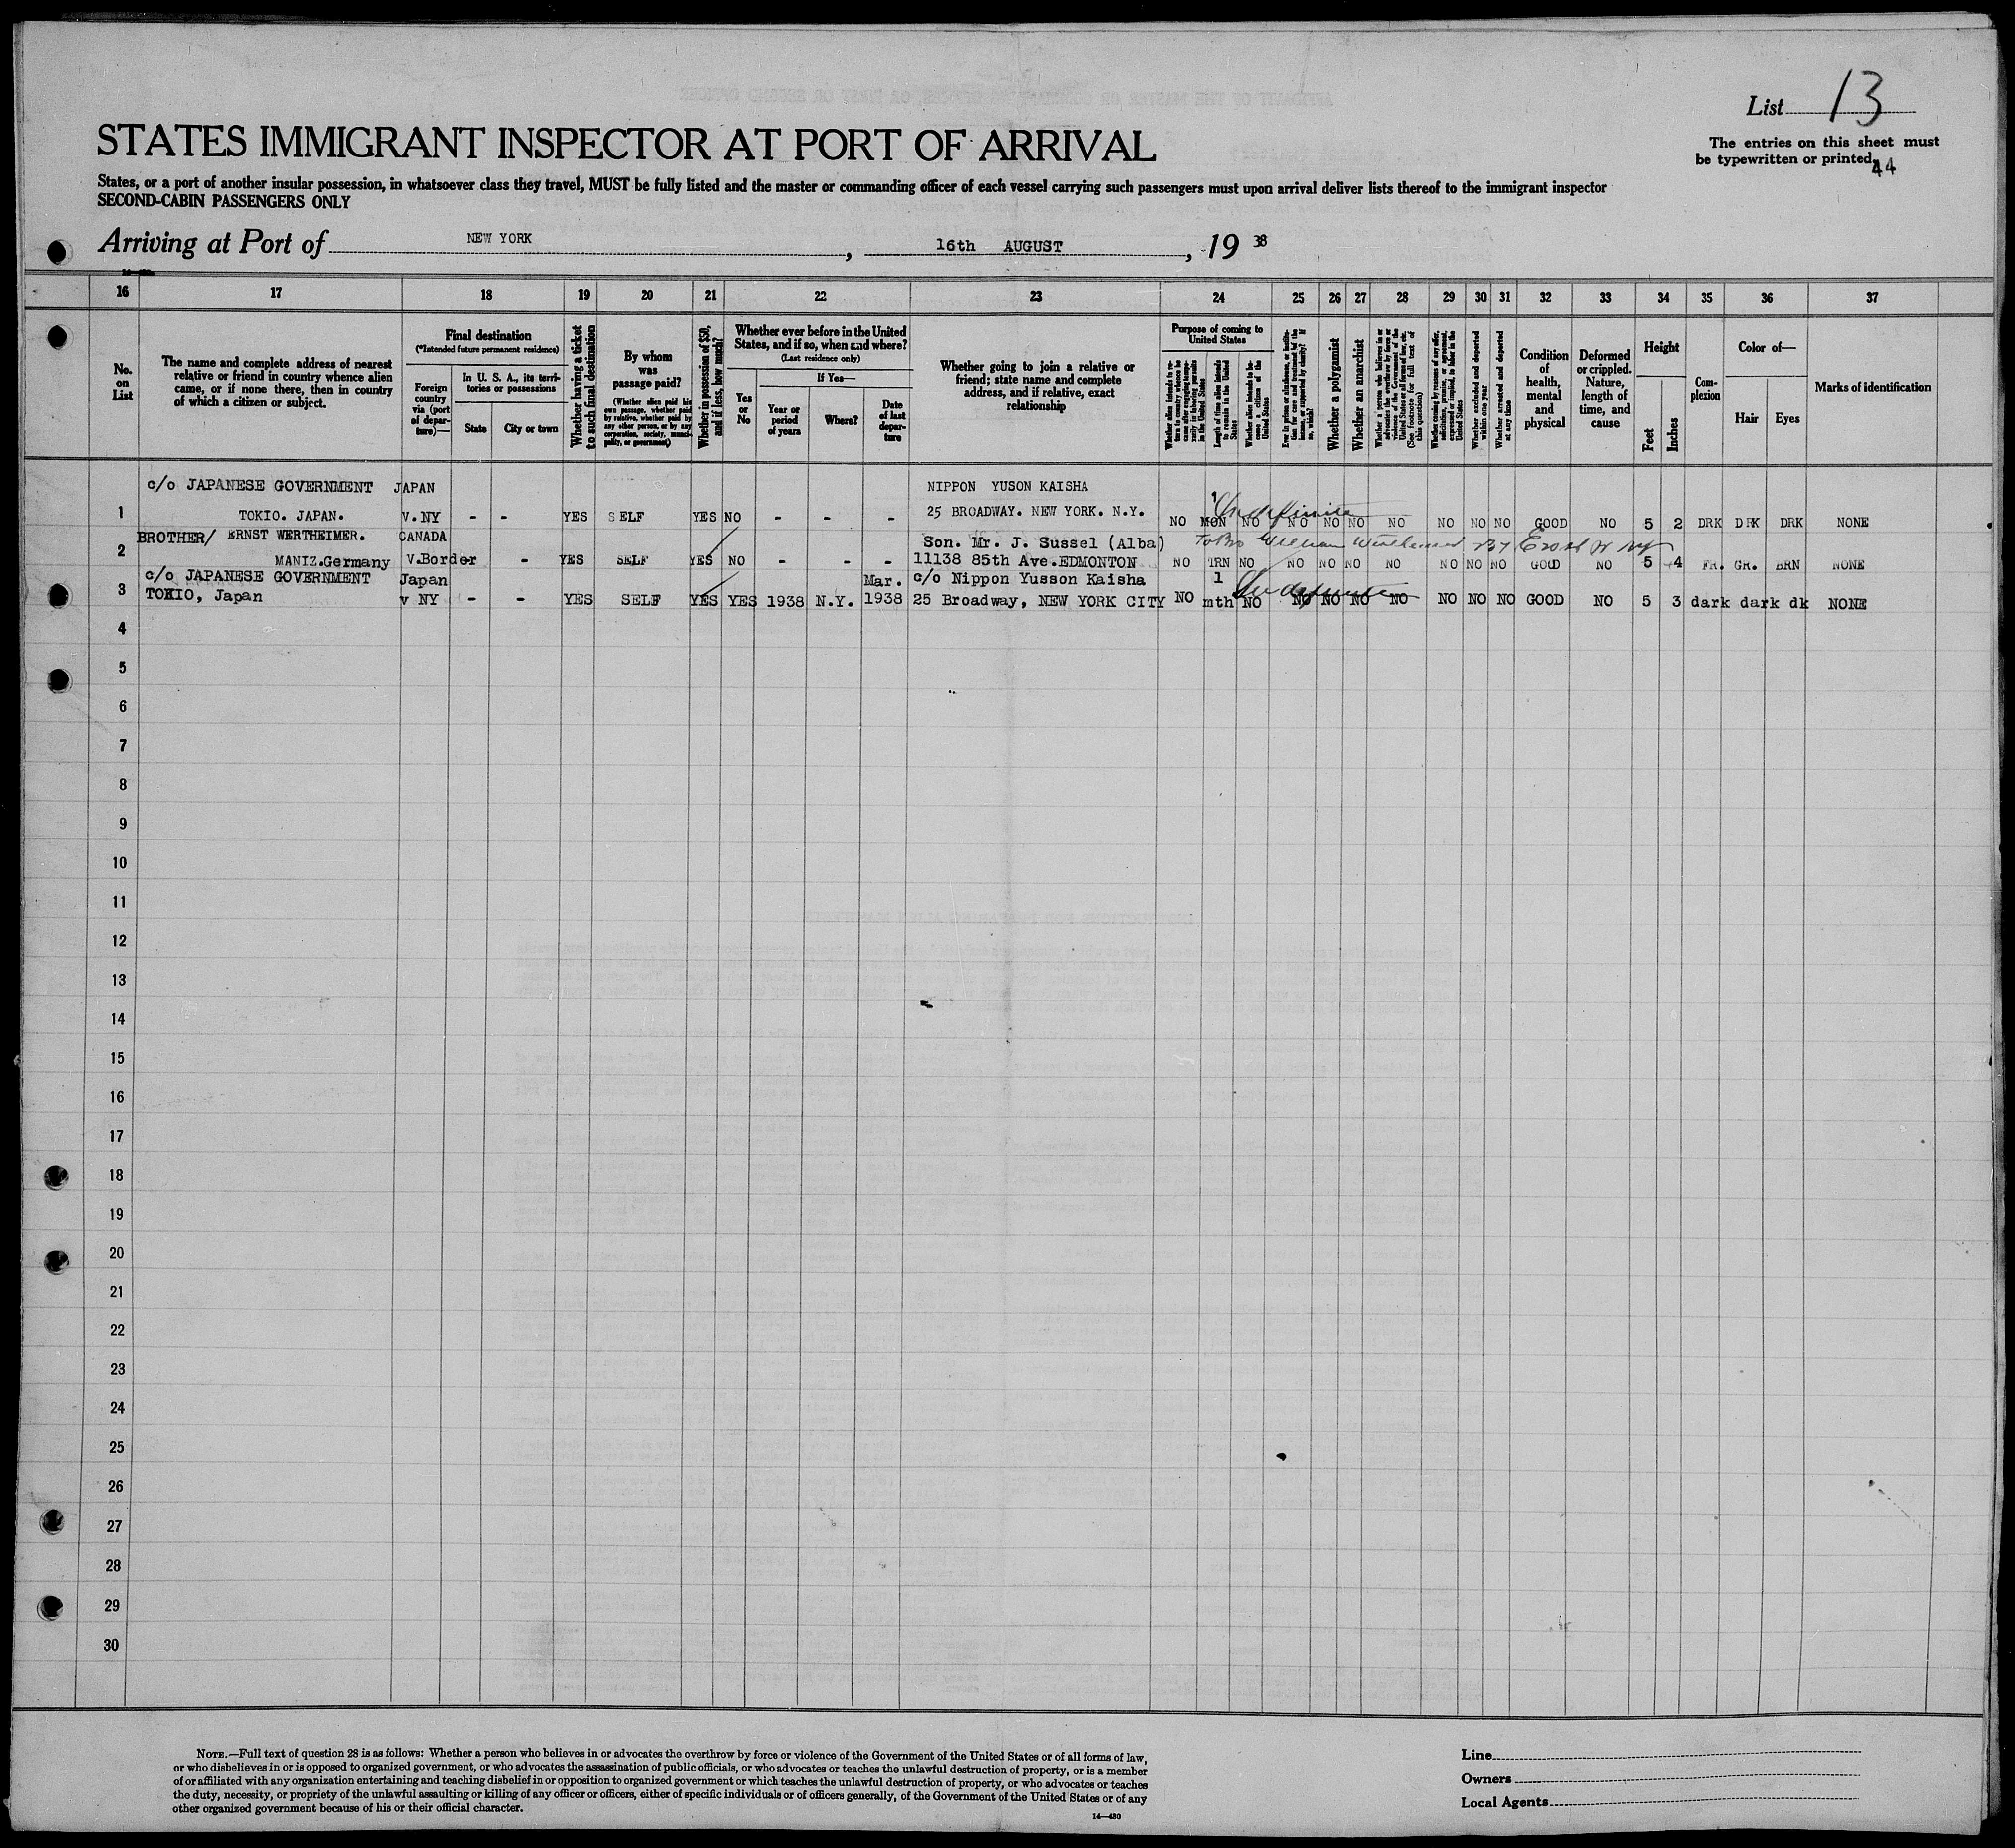 List 13
The entries on this sheet must
be typewritten or printed.
44
STATES IMMIGRANT INSPECTOR AT PORT OF ARRIVAL
States, or a port of another insular possession, in whatsoever class they travel, MUST be fully listed and the master or commanding officer of each vessel carrying such passengers must upon arrival deliver lists thereof to the immigrant inspector
SECOND-CABIN PASSENGERS ONLY
Arriving at Port of NEW YORK, 16th AUGUST, 19 38
16 17 18 19 20 21 22 23 24 25 26 27 28 29 30 31 32 33 34 35 36 37
No. on List
The name and complete address of nearest relative or friend in country whence alien came, or if none there, then in country of which a citizen or subject.
Final destination
(*Intended future permanent residence)
Foreign country via (port of departure)—
In U. S. A., its territories or possessions
State
City or town
Whether having a ticket to such final destination
By whom was passage paid?
(Whether alien paid his own passage, whether paid by relative, whether paid by any other person, or by any corporation, society, municipality, or government)
Whether in possession of $50, and if less, how much?
Whether ever before in the United States, and if so, when and where?
(Last residence only)
Yes or No
If Yes—
Year or period of years
Where?
Date of last departure
Whether going to join a relative or friend; state name and complete address, and if relative, exact relationship
Purpose of coming to United States
Whether alien intends to return to country whence he came after engaging temporarily in laboring pursuits in the United States
Length of time alien intends to remain in the United States
Whether alien intends to become a citizen of the United States
Ever in prison or almshouse, or institution for care and treatment of the insane, or supported by charity? If so, which?
Whether a polygamist
Whether an anarchist
Whether a person who believes in or advocates the overthrow by force or violence of the Government of the United States or all forms of law, etc. (See footnote for full text of this question)
Whether coming by reasons of any offer, solicitation, promise, or agreement, expressed or implied, to labor in the United States
Whether excluded and deported within one year
Whether arrested and deported at any time
Condition of health, mental and physical
Deformed or crippled. Nature, length of time, and cause
Height
Feet
Inches
Complexion
Color of—
Hair
Eyes
Marks of identification
c/o JAPANESE GOVERNMENT JAPAN NIPPON YUSON KAISHA 1 Indefinite
1 TOKIO. JAPAN. V.NY - - YES SELF YES NO - - - 25 BROADWAY. NEW YORK. N.Y. NO MON NO NO NO NO NO NO NO NO GOOD NO 5 2 DRK DRK DRK NONE
BROTHER/ ERNST WERTHEIMER. CANADA Son. Mr. J. Sussel (Alba) William
2 MANIZ.Germany V.Border - YES SELF YES NO - - - 11138 85th Ave.EDMONTON NO TRN NO NO NO NO NO NO NO NO GOOD NO 5 4 FR. GR. BRN NONE
c/o JAPANESE GOVERNMENT Japan Mar. c/o Nippon Yusson Kaisha 1 Indefinite
3 TOKIO, Japan v NY - - YES SELF YES YES 1938 N.Y. 1938 25 Broadway, NEW YORK CITY NO mth NO NO NO NO NO NO NO NO GOOD NO 5 3 dark dark dk NONE
4
5
6
7
8
9
10
11
12
13
14
15
16
17
18
19
20
21
22
23
24
25
26
27
28
29
30
NOTE.—Full text of question 28 is as follows: Whether a person who believes in or advocates the overthrow by force or violence of the Government of the United States or of all forms of law,
or who disbelieves in or is opposed to organized government, or who advocates the assassination of public officials, or who advocates or teaches the unlawful destruction of property, or is a member
of or affiliated with any organization entertaining and teaching disbelief in or opposition to organized government or which teaches the unlawful destruction of property, or who advocates or teaches
the duty, necessity, or propriety of the unlawful assaulting or killing of any officer or officers, either of specific individuals or of officers generally, of the Government of the United States or of any
other organized government because of his or their official character.
14—430
Line
Owners
Local Agents